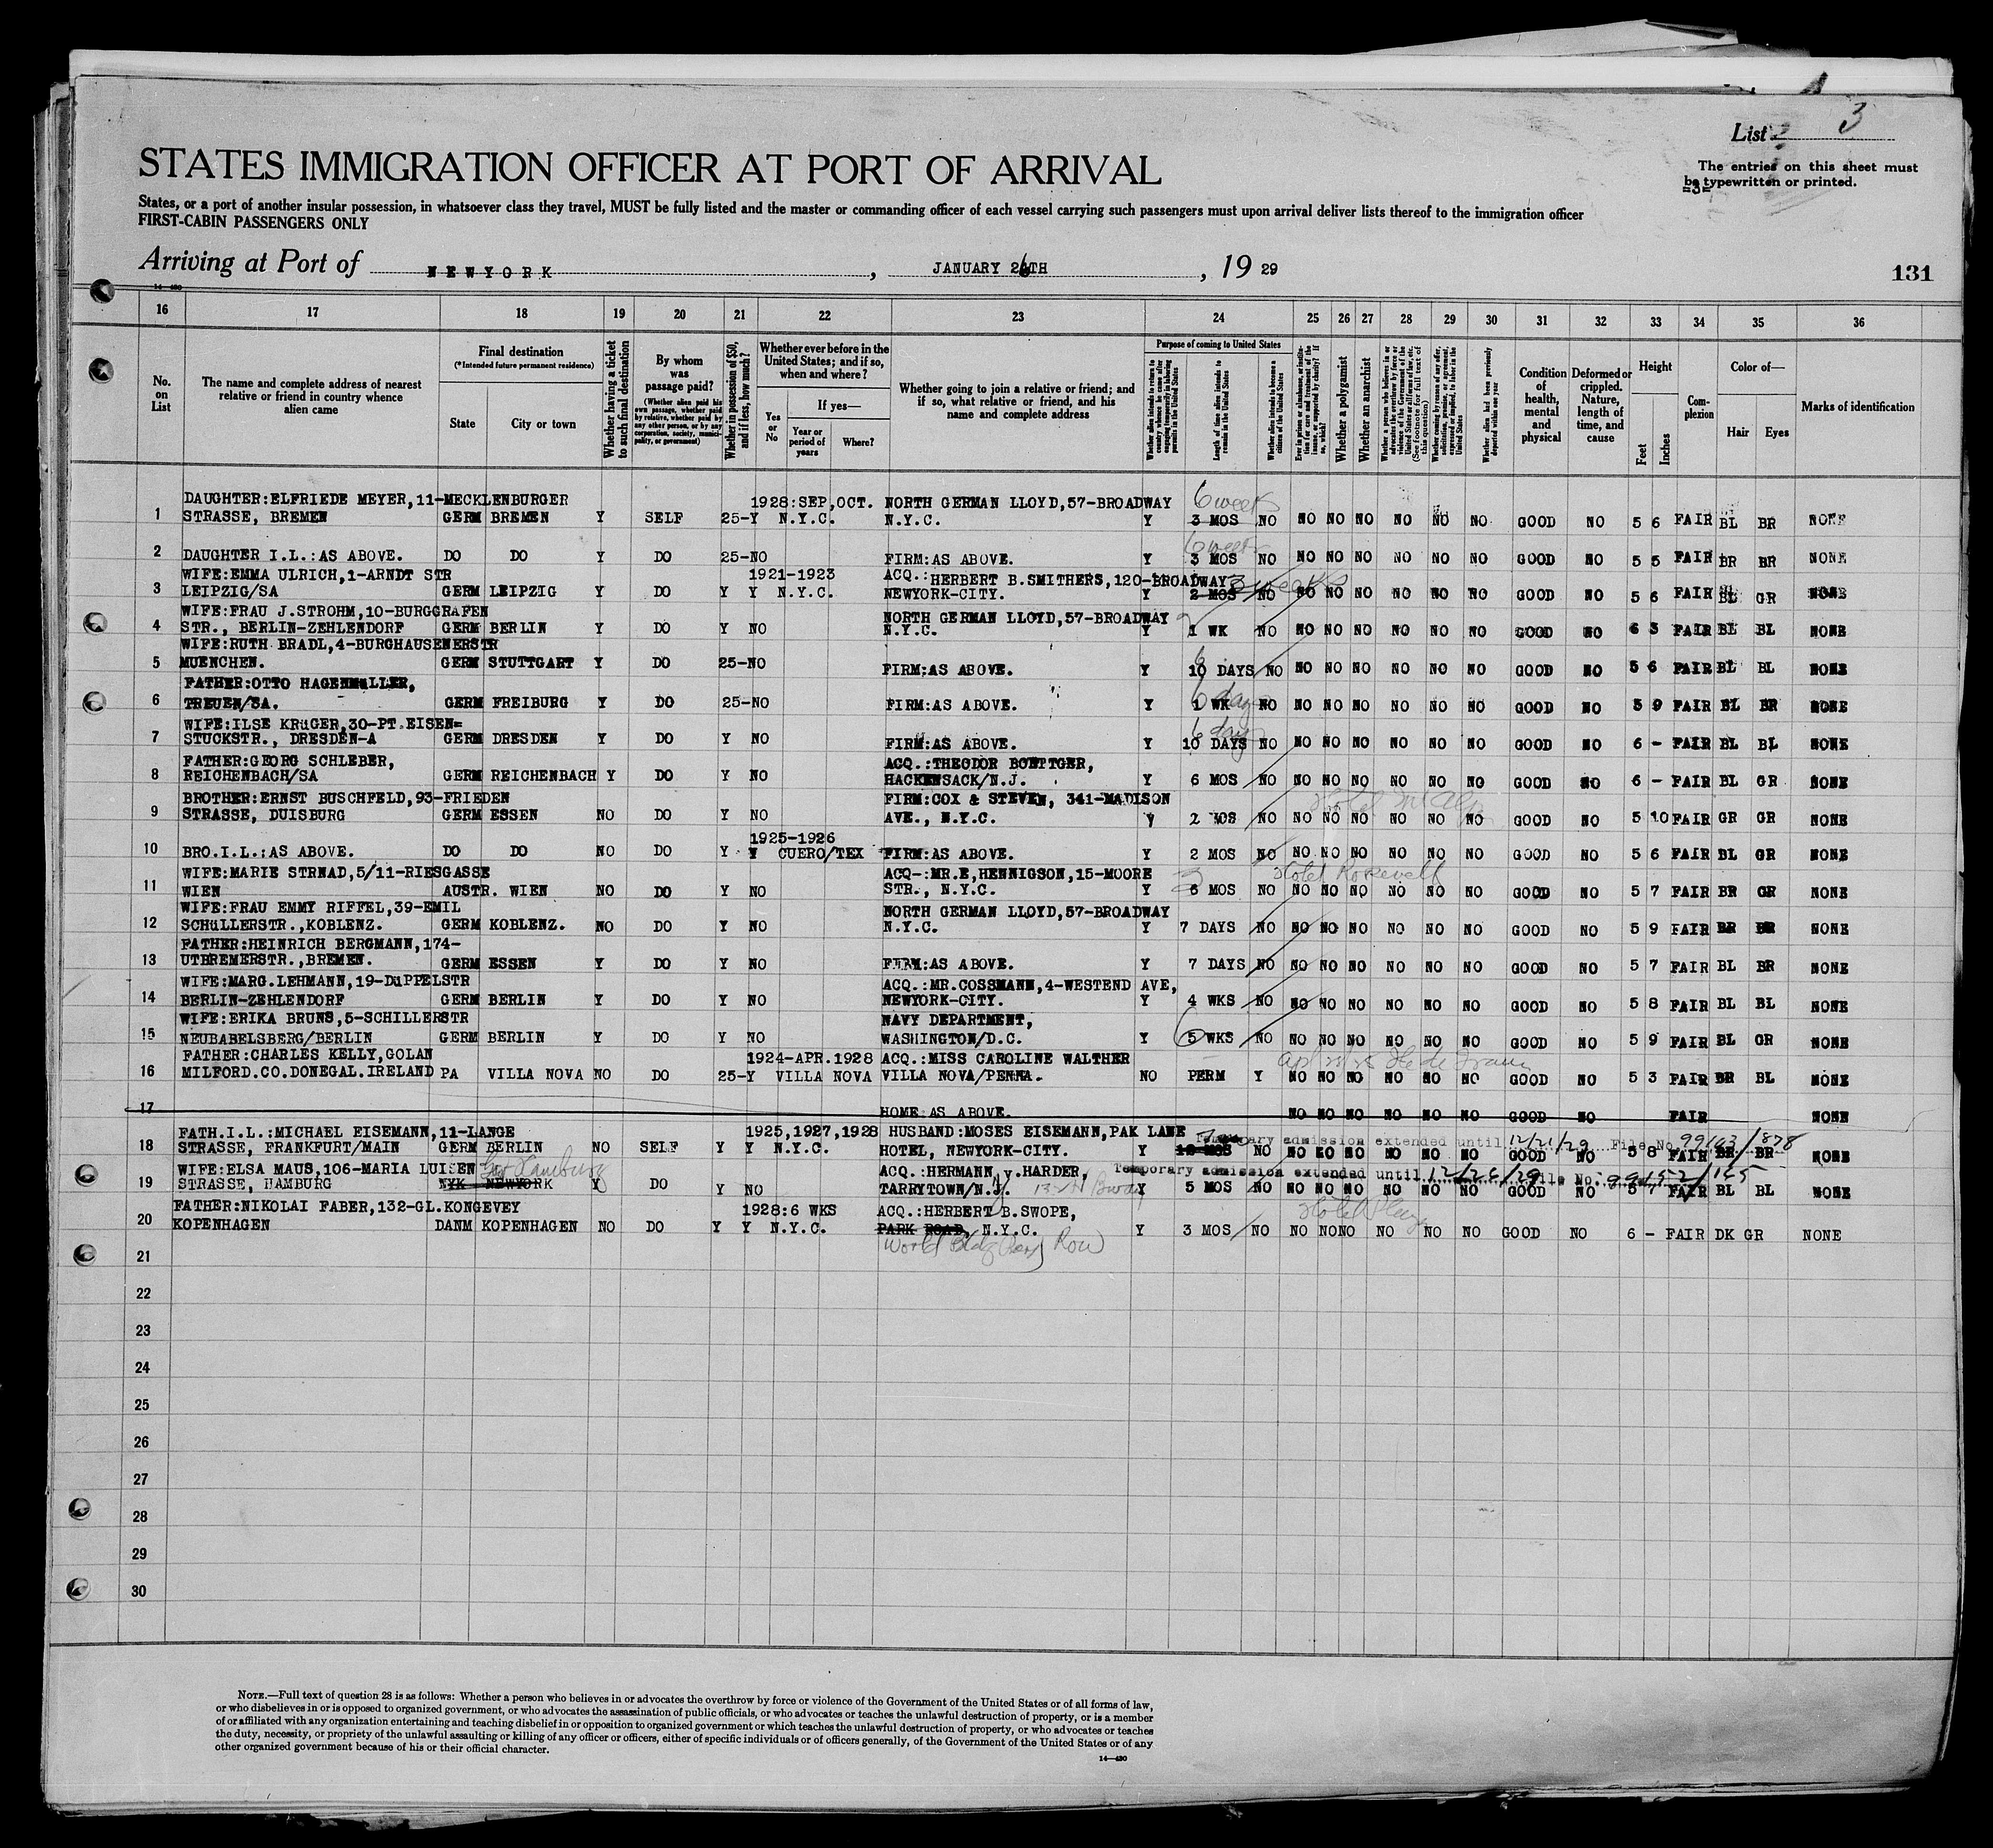 List 3
STATES IMMIGRATION OFFICER AT PORT OF ARRIVAL
The entries on this sheet must
be typewritten or printed.
"3"
States, or a port of another insular possession, in whatsoever class they travel, MUST be fully listed and the master or commanding officer of each vessel carrying such passengers must upon arrival deliver lists thereof to the immigration officer
FIRST-CABIN PASSENGERS ONLY
Arriving at Port of NEWYORK, JANUARY 26TH, 19 29
131
14-430
16 17 18 19 20 21 22 23 24 25 26 27 28 29 30 31 32 33 34 35 36
No. on List
The name and complete address of nearest relative or friend in country whence alien came
Final destination
(*Intended future permanent residence)
State
City or town
Whether having a ticket to such final destination
By whom was passage paid?
(Whether alien paid his own passage, whether paid by relative, whether paid by any other person, or by any corporation, society, municipality, or government)
Whether in possession of $50, and if less, how much?
Whether ever before in the United States; and if so, when and where?
Yes or No
If yes—
Year or period of years
Where?
Whether going to join a relative or friend; and if so, what relative or friend, and his name and complete address
Purpose of coming to United States
Length of time alien intends to remain in the United States
Whether alien intends to become a citizen of the United States
Whether a polygamist
Whether an anarchist
Whether alien had been previously deported within one year
Condition of health, mental and physical
Deformed or crippled. Nature, length of time, and cause
Height
Feet
Inches
Complexion
Color of—
Hair
Eyes
Marks of identification
DAUGHTER:ELFRIEDE MEYER,11-MECKLENBURGER 1928:SEP,OCT. NORTH GERMAN LLOYD,57-BROADWAY 6 weeks
1 STRASSE, BREMEN GERM BREMEN Y SELF 25-Y N.Y.C. N.Y.C. Y 3 MOS NO NO NO NO NO NO NO GOOD NO 5 6 FAIR BL BR NONE
6 weeks
2 DAUGHTER I.L.:AS ABOVE. DO DO Y DO 25-NO FIRM:AS ABOVE. Y 3 MOS NO NO NO NO NO NO NO GOOD NO 5 5 FAIR BR BR NONE
WIFE:EMMA ULRICH,1-ARNDT STR 1921-1923 ACQ.:HERBERT B.SMITHERS,120-BROADWAY 3 weeks
3 LEIPZIG/SA GERM LEIPZIG Y DO Y Y N.Y.C. NEWYORK-CITY. Y 2 MOS NO NO NO NO NO NO NO GOOD NO 5 6 FAIR BL GR NONE
WIFE:FRAU J.STROHM,10-BURGGRAFEN NORTH GERMAN LLOYD,57-BROADWAY
4 STR., BERLIN-ZEHLENDORF GERM BERLIN Y DO Y NO N.Y.C. Y 1 WK NO NO NO NO NO NO NO GOOD NO 6 3 FAIR BL BL NONE
WIFE:RUTH BRADL,4-BURGHAUSENERSTR
5 MUENCHEN. GERM STUTTGART Y DO 25-NO FIRM:AS ABOVE. Y 10 DAYS NO NO NO NO NO NO NO GOOD NO 5 6 FAIR BL BL NONE
FATHER:OTTO HAGENMüLLER, 6 days
6 TREUEN/SA. GERM FREIBURG Y DO 25-NO FIRM:AS ABOVE. Y 1 WK NO NO NO NO NO NO NO GOOD NO 5 9 FAIR BL BR NONE
WIFE:ILSE KRüGER,30-PT.EISEN= 6 days
7 STUCKSTR., DRESDEN-A GERM DRESDEN Y DO Y NO FIRM:AS ABOVE. Y 10 DAYS NO NO NO NO NO NO NO GOOD NO 6 - FAIR BL BL NONE
FATHER:GEORG SCHLEBER, ACQ.:THEODOR BOETTGER,
8 REICHENBACH/SA GERM REICHENBACH Y DO Y NO HACKENSACK/N.J. Y 6 MOS NO NO NO NO NO NO NO GOOD NO 6 - FAIR BL GR NONE
BROTHER:ERNST BUSCHFELD,93-FRIEDEN FIRM:COX & STEVEN, 341-MADISON Hotel McAlpin
9 STRASSE, DUISBURG GERM ESSEN NO DO Y NO AVE., N.Y.C. Y 2 MOS NO NO NO NO NO NO NO GOOD NO 5 10 FAIR GR GR NONE
1925-1926
10 BRO.I.L.:AS ABOVE. DO DO NO DO Y Y CUERO/TEX FIRM:AS ABOVE. Y 2 MOS NO NO NO NO NO NO NO GOOD NO 5 6 FAIR BL GR NONE
WIFE:MARIE STRNAD,5/11-RIESGASSE ACQ-:MR.E,HENNIGSON,15-MOORE 3 Hotel Roosevelt
11 WIEN AUSTR. WIEN NO DO Y NO STR., N.Y.C. Y 6 MOS NO NO NO NO NO NO NO GOOD NO 5 7 FAIR BR GR NONE
WIFE:FRAU EMMY RIFFEL,39-EMIL NORTH GERMAN LLOYD,57-BROADWAY
12 SCHüLLERSTR.,KOBLENZ. GERM KOBLENZ. NO DO Y NO N.Y.C. Y 7 DAYS NO NO NO NO NO NO NO GOOD NO 5 9 FAIR BR BR NONE
FATHER:HEINRICH BERGMANN,174-
13 UTBREMERSTR.,BREMEN. GERM ESSEN Y DO Y NO FIRM:AS ABOVE. Y 7 DAYS NO NO NO NO NO NO NO GOOD NO 5 7 FAIR BL BR NONE
WIFE:MARG.LEHMANN,19-DüPPELSTR ACQ.:MR.COSSMANN,4-WESTEND AVE,
14 BERLIN-ZEHLENDORF GERM BERLIN Y DO Y NO NEWYORK-CITY. Y 4 WKS NO NO NO NO NO NO NO GOOD NO 5 8 FAIR BL BL NONE
WIFE:ERIKA BRUNS,5-SCHILLERSTR NAVY DEPARTMENT, 6
15 NEUBABELSBERG/BERLIN GERM BERLIN Y DO Y NO WASHINGTON/D.C. Y 5 WKS NO NO NO NO NO NO NO GOOD NO 5 9 FAIR BL GR NONE
FATHER:CHARLES KELLY,GOLAN 1924-APR.1928 ACQ.:MISS CAROLINE WALTHER
16 MILFORD.CO.DONEGAL.IRELAND PA VILLA NOVA NO DO 25-Y VILLA NOVA VILLA NOVA/PENNA. NO PERM Y NO NO NO NO NO NO GOOD NO 5 3 FAIR BR BL NONE
17 HOME AS ABOVE. NO NO NO NO NO NO GOOD NO FAIR NONE
FATH.I.L.:MICHAEL EISEMANN,11-LANGE 1925,1927,1928 HUSBAND:MOSES EISEMANN,PAK LANE Temporary admission extended until 12/21/29 File No. 99143/878
18 STRASSE, FRANKFURT/MAIN GERM BERLIN NO SELF Y Y N.Y.C. HOTEL, NEWYORK-CITY. Y MOS NO NO NO NO NO NO NO GOOD NO 5 8 FAIR BR BR NONE
WIFE:ELSA MAUS,106-MARIA LUISEN Ger Hamburg ACQ.:HERMANN v.HARDER, Temporary admission extended until 12/26/29 File No. 99152/165
19 STRASSE, HAMBURG NYK NEWYORK Y DO Y NO TARRYTOWN/N.J. Y 5 MOS NO NO NO NO NO NO NO GOOD NO 5 7 FAIR BL BL NONE
FATHER:NIKOLAI FABER,132-GL.KONGEVEY 1928:6 WKS ACQ.:HERBERT B.SWOPE, Hotel Plaza
20 KOPENHAGEN DANM KOPENHAGEN NO DO Y Y N.Y.C. PARK ROAD, N.Y.C. Y 3 MOS NO NO NO NO NO NO NO GOOD NO 6 - FAIR DK GR NONE
World Bldg Park Row
21
22
23
24
25
26
27
28
29
30
NOTE.—Full text of question 28 is as follows: Whether a person who believes in or advocates the overthrow by force or violence of the Government of the United States or of all forms of law,
or who disbelieves in or is opposed to organized government, or who advocates the assassination of public officials, or who advocates or teaches the unlawful destruction of property, or is a member
of or affiliated with any organization entertaining and teaching disbelief in or opposition to organized government or which teaches the unlawful destruction of property, or who advocates or teaches
the duty, necessity, or propriety of the unlawful assaulting or killing of any officer or officers, either of specific individuals or of officers generally, of the Government of the United States or of any
other organized government because of his or their official character.
14—430